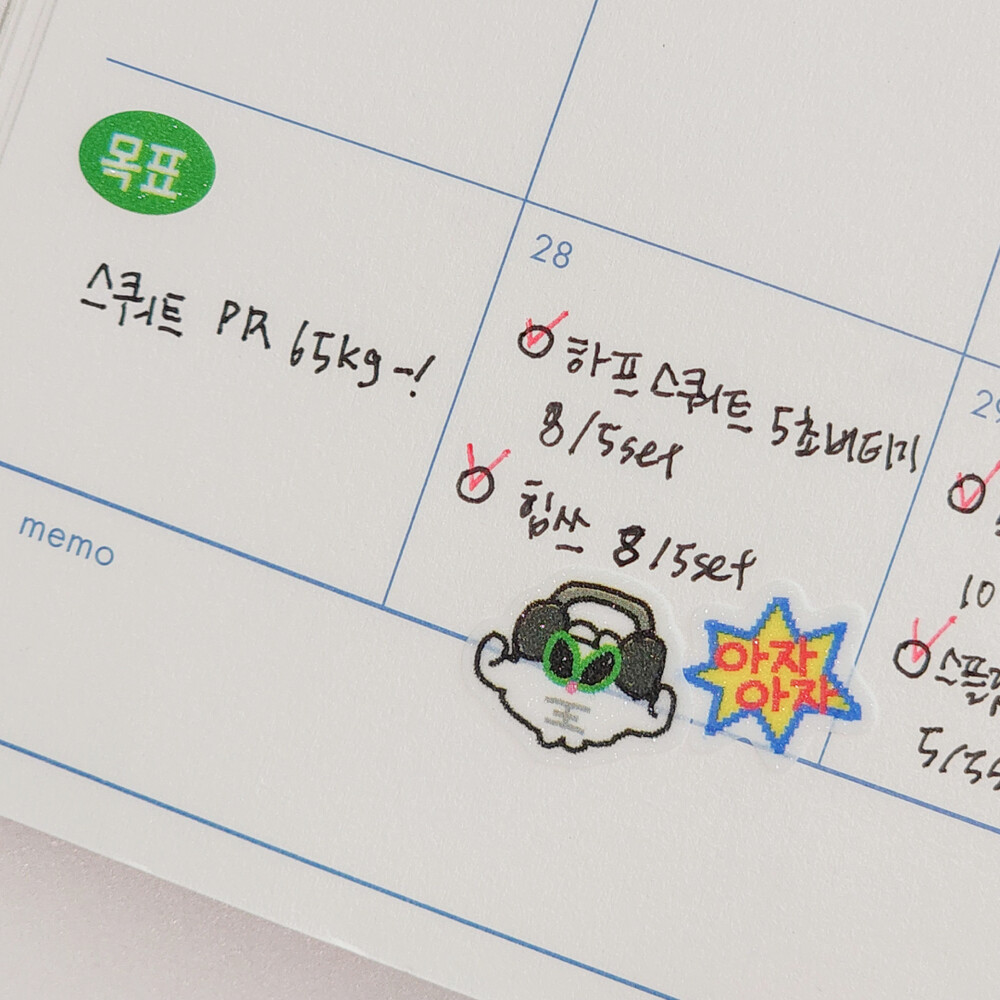 목표
스쿼트 PR 65kg-!
28
하프 스쿼트 5초버티기
8/5set
힙쓰 8/5set
아자
아자
memo
29
10
5/3s